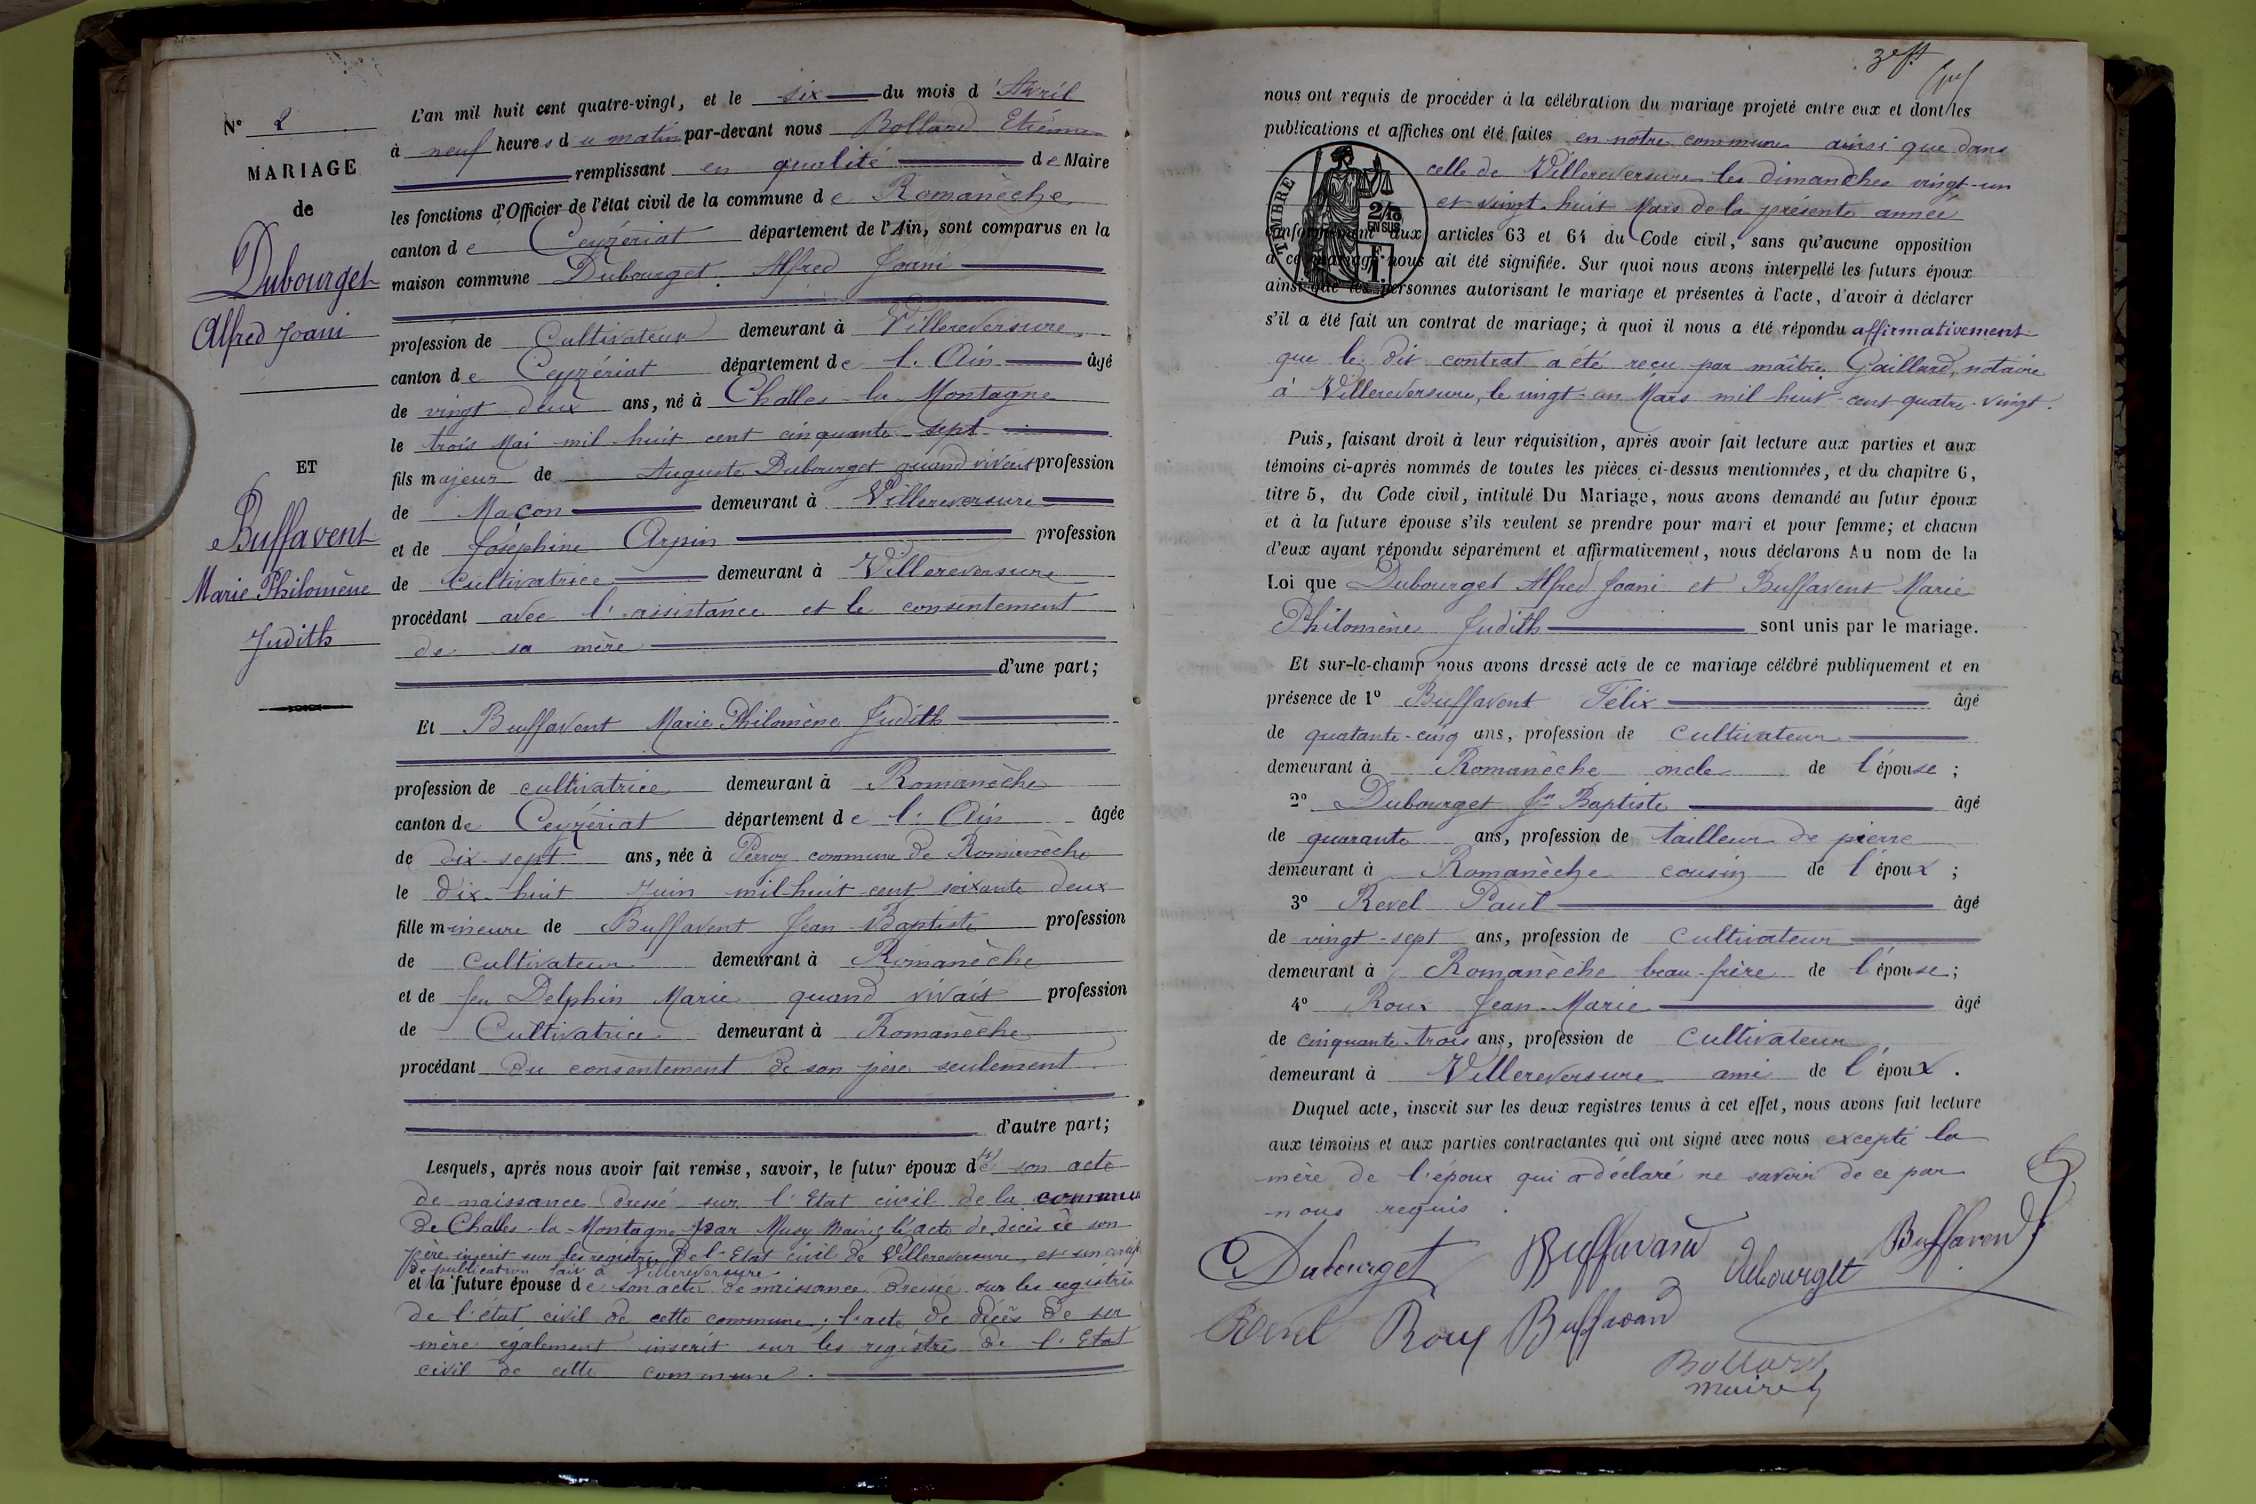 N° 2
MARIAGE
de
Dubourget
Alfred Joani
ET
Buffavent
Marie Philomène
Judith
L'an mil huit cent quatre-vingt, et le six du mois d'Avril
à neuf heures du matin par-devant nous Bollard Etienne
remplissant en qualité de Maire
les fonctions d'Officier de l'état civil de la commune de Romanèche
canton de Ceyzériat département de l'Ain, sont comparus en la
maison commune Dubourget Alfred Joani
profession de Cultivateur demeurant à Villereversure
canton de Ceyzériat département de l'Ain âgé
de vingt deux ans, né à Challes-la-Montagne
le trois Mai mil-huit cent cinquante-sept
fils majeur de Auguste Dubourget quand vivait profession
de Maçon demeurant à Villereversure
et de Joséphine Arpin profession
de Cultivatrice demeurant à Villereversure
procédant avec l'assistance et le consentement
de sa mère
d'une part;
Et Buffavent Marie Philomène Judith
profession de cultivatrice demeurant à Romanèche
canton de Ceyzériat département de l'Ain âgée
de dix-sept ans, née à Perroy commune de Romanèche
le dix-huit Juin mil-huit cent soixante deux
fille mineure de Buffavent Jean-Baptiste profession
de cultivateur demeurant à Romanèche
et de feu Delphin Marie quand vivait profession
de Cultivatrice demeurant à Romanèche
procédant du consentement de son père seulement
d'autre part;
Lesquels, après nous avoir fait remise, savoir, le futur époux de son acte
de naissance dressé sur l'Etat civil de la commune
de Challes-la-Montagne par Musy Maire, l'acte de décès de son
père inscrit sur les registres de l'Etat civil de Villereversure, et un
de publication fait à Villereversure
et la future épouse de son acte de naissance dressé sur les registres
de l'état civil de cette commune; l'acte de décès de sa
mère également inscrit sur les registres de l'Etat
civil de cette commune.
3e ft
nous ont requis de procéder à la célébration du mariage projeté entre eux et dont les
publications et affiches ont été faites en notre commune ainsi que dans
celle de Villereversure les dimanches vingt-un
et vingt-huit Mars de la présente année
TIMBRE
2/10
EN SUS
conformément aux articles 63 et 64 du Code civil, sans qu'aucune opposition
à ce mariage nous ait été signifiée. Sur quoi nous avons interpellé les futurs époux
ainsi que les personnes autorisant le mariage et présentes à l'acte, d'avoir à déclarer
s'il a été fait un contrat de mariage; à quoi il nous a été répondu affirmativement
que le dit contrat a été reçu par maître Gaillard, notaire
à Villereversure, le vingt-un Mars mil-huit-cent-quatre-vingt.
Puis, faisant droit à leur réquisition, après avoir fait lecture aux parties et aux
témoins ci-après nommés de toutes les pièces ci-dessus mentionnées, et du chapitre 6,
titre 5, du Code civil, intitulé Du Mariage, nous avons demandé au futur époux
et à la future épouse s'ils veulent se prendre pour mari et pour femme; et chacun
d'eux ayant répondu séparément et affirmativement, nous déclarons Au nom de la
Loi que Dubourget Alfred Joani et Buffavent Marie
Philomène Judith sont unis par le mariage.
Et sur-le-champ nous avons dressé acte de ce mariage célébré publiquement et en
présence de 1° Buffavent Félix âgé
de quatante-cinq ans, profession de cultivateur
demeurant à Romanèche oncle de l'épouse;
2° Dubourget Jn Baptiste âgé
de quarante ans, profession de tailleur de pierre
demeurant à Romanèche cousin de l'époux;
3° Revel Paul âgé
de vingt-sept ans, profession de cultivateur
demeurant à Romanèche beau-frère de l'épouse;
4° Roux Jean-Marie âgé
de cinquante-trois ans, profession de cultivateur
demeurant à Villereversure ami de l'époux.
Duquel acte, inscrit sur les deux registres tenus à cet effet, nous avons fait lecture
aux témoins et aux parties contractantes qui ont signé avec nous excepté la
mère de l'époux qui a déclaré ne savoir de ce par
nous requis.
Dubourget Buffavand Dubourget Buffavend
Revel Roux Buffavand
Bollard
maire